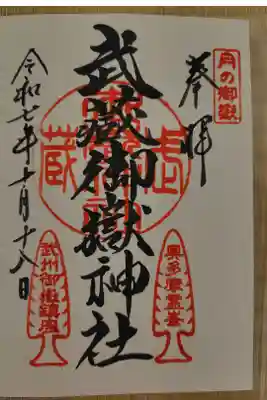 月の御嶽
奉拝
奥多摩霊峯
武蔵御嶽神社
令和七年十月十八日
武州御嶽鎮座